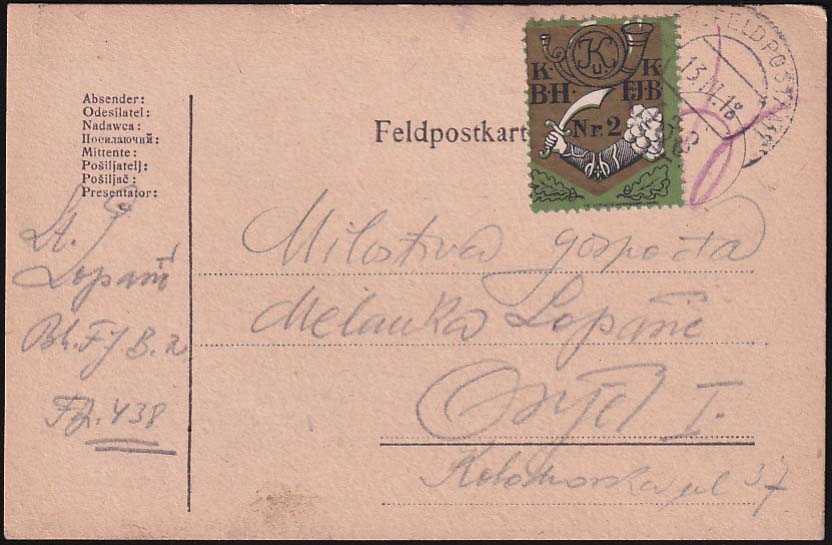 Absender:
Odesilatel:
Nadawca:
Посилаючий:
Mittente:
Pošiljatelj:
Pošiljač:
Presentator:
Feldpostkart
K u K
K K
B·H· FJ·B
Nr. 2
FELDPOST
13.II.18
Lt.
Lopašić
Bh. FJ B. 2
Fp. 438
Milostiva gospođa
Melanka Lopašić
Osijek I.
ul 37